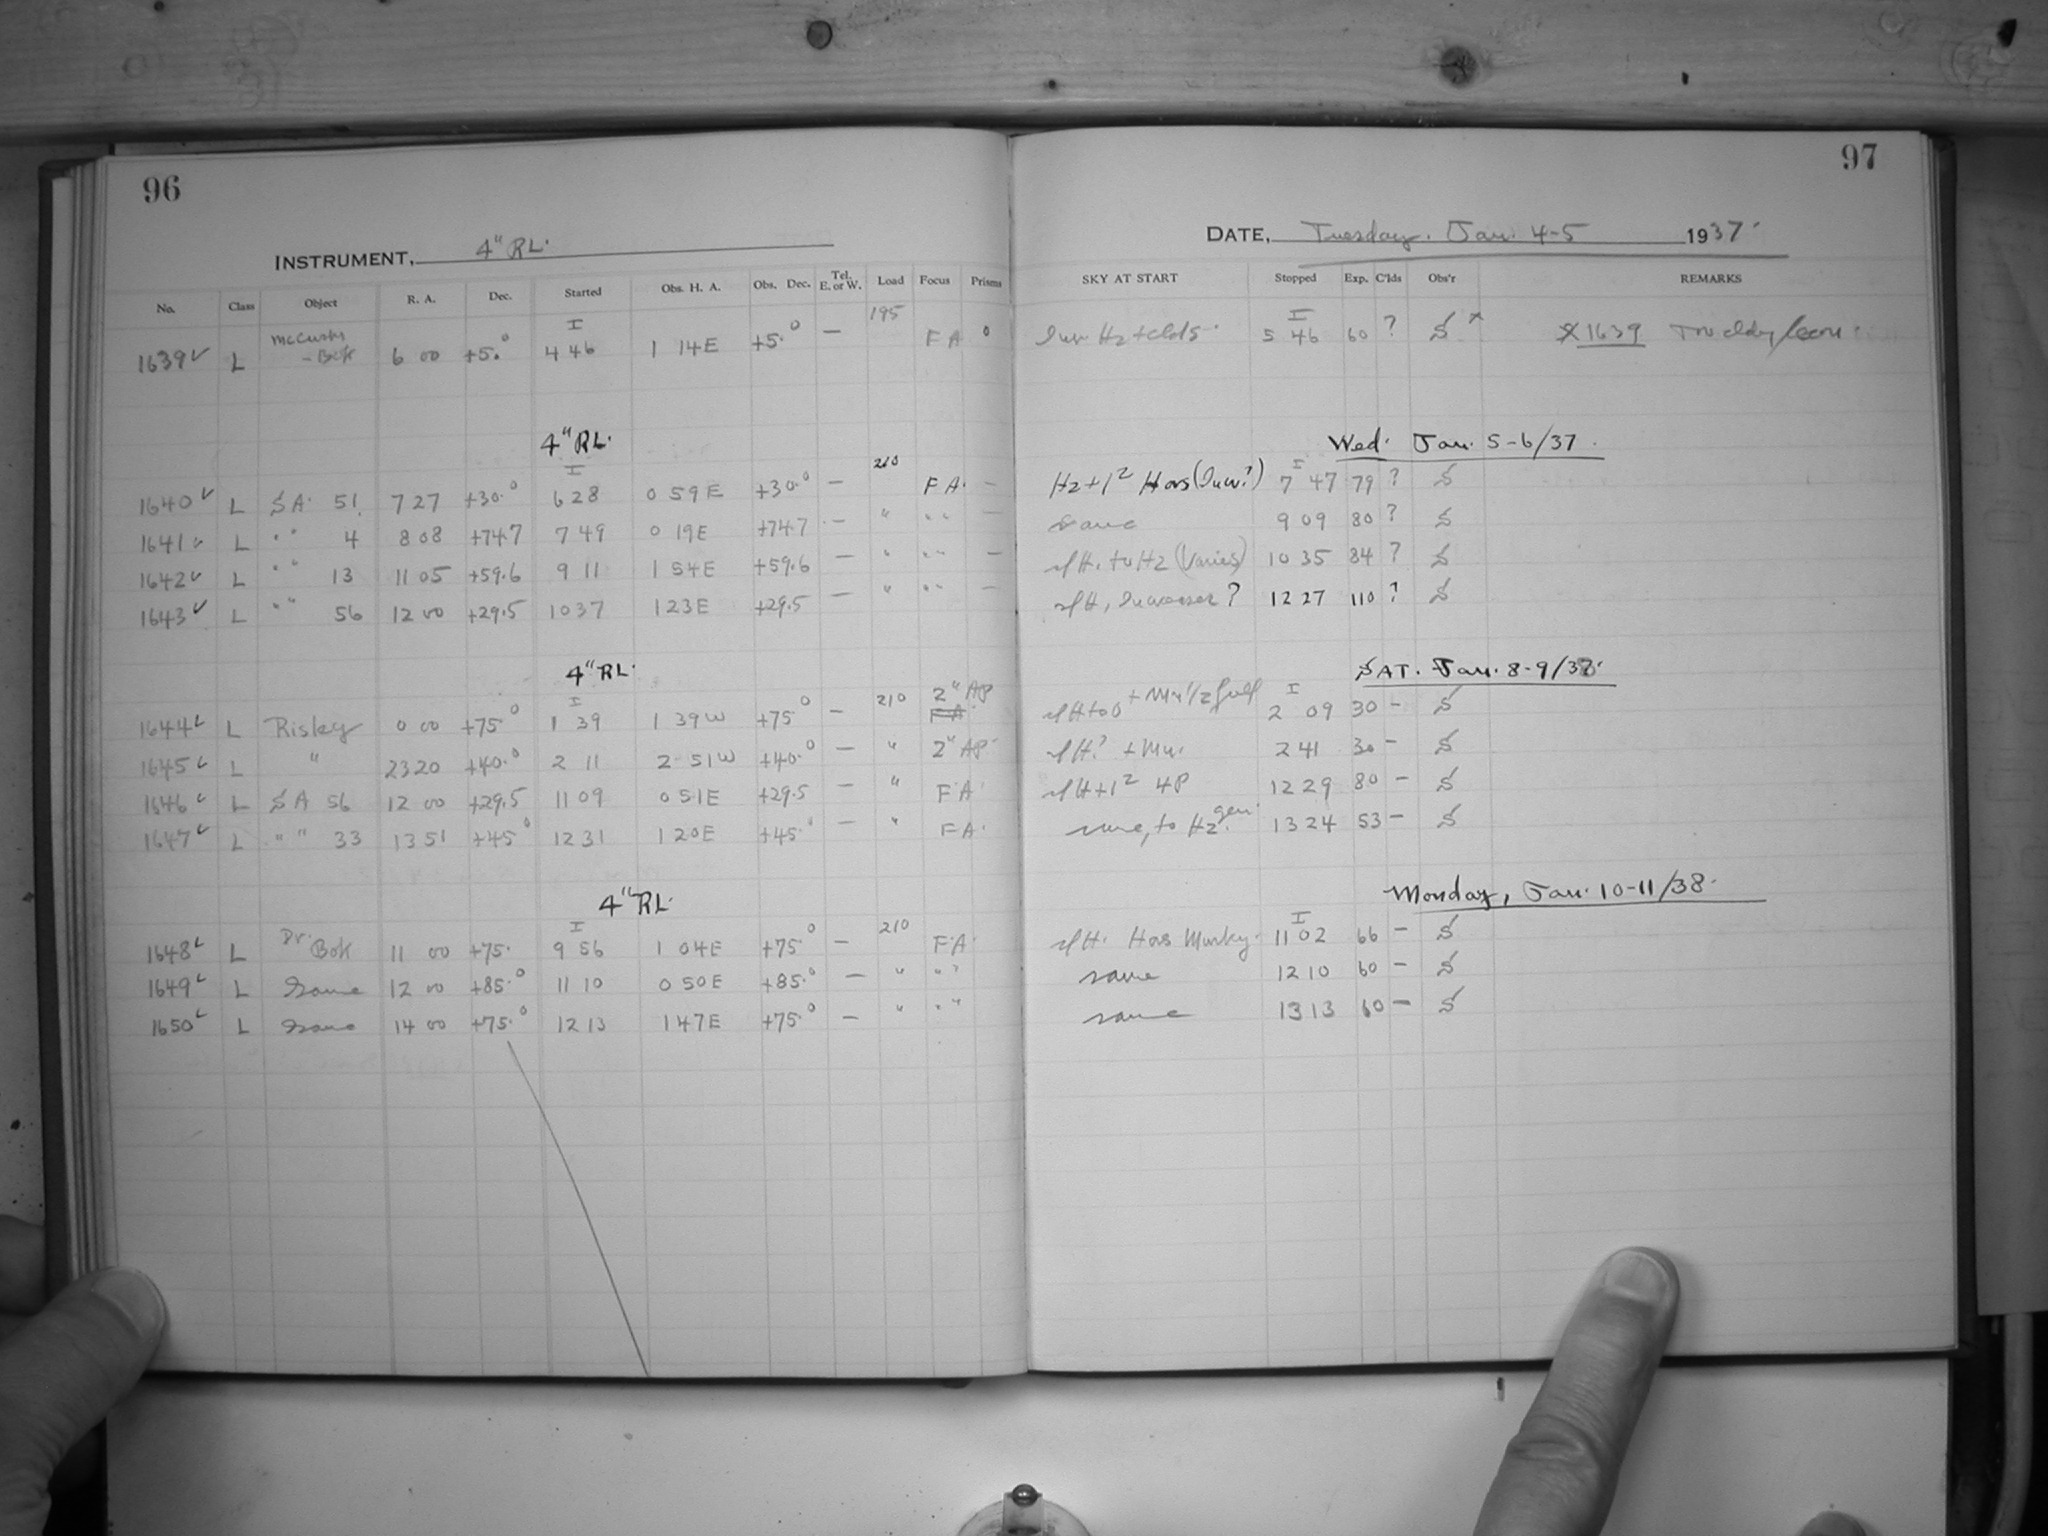 96
97
INSTRUMENT, 4" RL.
DATE, Tuesday. Jan. 4-5 1937.
No. Class Object R. A. Dec. Started Obs. H. A. Obs. Dec. Tel. E. or W. Load Focus Prisms SKY AT START Stopped Exp. C'lds Obs'r REMARKS
1639 L - Bok 6 00 +5.° 4 46 1 14E +5.° — 195 F A 0 H2 + clds. 5 46 60 ? S x x 1639
4" RL. Wed. Jan. 5-6/37.
1640 L S A. 51 7 27 +30.° 6 28 0 59E +30.° — 210 F A. — H2 + 1² Hors 7 47 79 ? S
1641 L " " 4 8 08 +74.7 7 49 0 19E +74.7 — " " " — same 9 09 80 ? S
1642 L " " 13 11 05 +59.6 9 11 1 54E +59.6 — " " " — H. to H2 (Varies) 10 35 84 ? S
1643 L " " 56 12 00 +29.5 10 37 1 23E +29.5 — " " " — 12 27 110 ? S
4" RL. SAT. Jan. 8-9/38.
1644 L Risley 0 00 +75° 1 39 1 39W +75° — 210 2" AP F A. 2 09 30 — S
1645 L " 23 20 +40.° 2 11 2 51W +40.° — " 2" AP. 2 41 30 — S
1646 L S A 56 12 00 +29.5 11 09 0 51E +29.5 — " F A. 12 29 80 — S
1647 L " " 33 13 51 +45° 12 31 1 20E +45.° — " F A. same, to H2 gen. 13 24 53 — S
4" RL. Monday, Jan. 10-11/38.
1648 L Dr. Bok 11 00 +75. 9 56 1 04E +75° — 210 F.A. Hors Murky. 11 02 66 — S
1649 L Same 12 00 +85.° 11 10 0 50E +85.° — " " " same 12 10 60 — S
1650 L Same 14 00 +75.° 12 13 1 47E +75.° — " " " same 13 13 60 — S